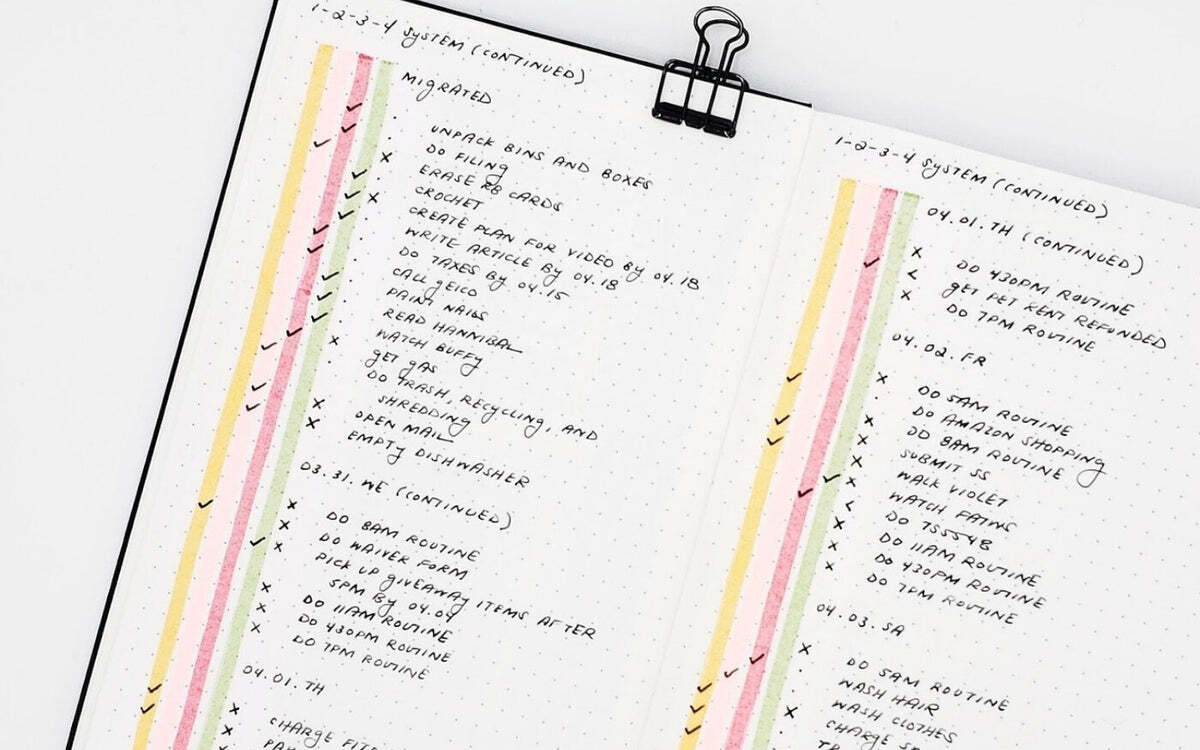 1-2-3-4 SYSTEM (CONTINUED)
MIGRATED
UNPACK BINS AND BOXES
DO FILING
ERASE RB CARDS
CROCHET
CREATE PLAN FOR VIDEO BY 04.18
WRITE ARTICLE BY 04.18
DO TAXES BY 04.15
CALL GEICO
PAINT NAILS
READ HANNIBAL
WATCH BUFFY
GET GAS
DO TRASH, RECYCLING, AND
SHREDDING
OPEN MAIL
EMPTY DISHWASHER
03.31. WE (CONTINUED)
DO 8AM ROUTINE
DO WAIVER FORM
PICK UP GIVEAWAY ITEMS AFTER
5PM BY 04.04
DO 11AM ROUTINE
DO 430PM ROUTINE
DO 7PM ROUTINE
04.01. TH
CHARGE
1-2-3-4 SYSTEM (CONTINUED)
04.01. TH (CONTINUED)
DO 430PM ROUTINE
GET PET RENT REFUNDED
DO 7PM ROUTINE
04.02. FR
DO 5AM ROUTINE
DO AMAZON SHOPPING
DO 8AM ROUTINE
SUBMIT SS
WALK VIOLET
WATCH
DO
DO 11AM ROUTINE
DO 430PM ROUTINE
DO 7PM ROUTINE
04.03. SA
DO 5AM ROUTINE
WASH HAIR
WASH CLOTHES
CHARGE